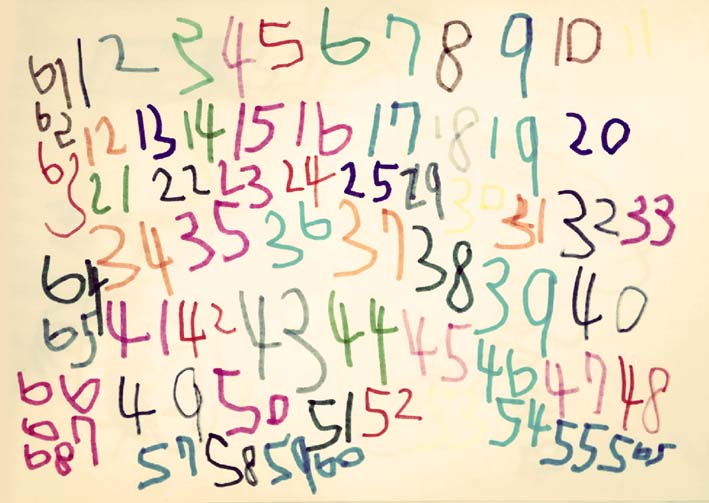 61 1 2 3 4 5 6 7 8 9 10 11
62 12 13 14 15 16 17 18 19 20
63 21 22 23 24 25 29 30 31 32 33
34 35 36 37 38 39 40
64
65 41 42 43 44 45 46 47 48
66 49 50 51 52 54 55 5
67
68 57 58 59 60